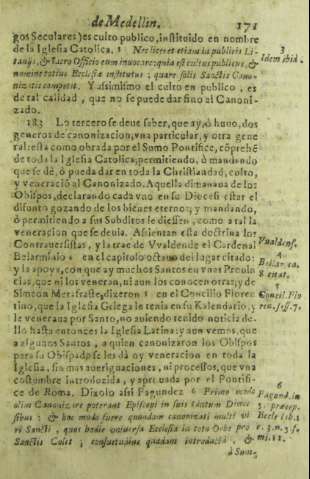 de Medellin. 171
gos Seculares) es culto publico, instituido en nombre
de la Iglesia Catolica. 3 Nec licet et etiam in publicis Li-
tanijs, & in Officio eum invocare: quia est cultus publicus, &
nomine totius Ecclesiæ institutus; quare solis Sanctis Cano-
nizatis competit. Y assimismo el culto en publico, es
de tal calidad, que no se puede dar sino al Canoni-
zado.
3
Idem ibid.
183 Lo tercero se deve saber, que ay, ò huvo, dos
generos de canonizacion, vna particular, y otra gene
ral: esta como obrada por el Sumo Pontifice, cõprehẽ
de toda la Iglesia Catolica, permitiendo, ò mandando
que se dè, ò pueda dar en toda la Christiandad, culto,
y veneraciõ al Canonizado. Aquella dimanava de los
Obispos, declarando cada vno en su Diocesi estar el
difunto gozando de los bienes eternos; y mandando,
ò permitiendo a sus Subditos le diessen, como a tal la
veneracion que se devia. Assientan esta doctrina los
Contraversistas, y la trae de Vvaldense el Cardenal
Belarminio 4 en el capitulo octavo del lugar citado:
y la apoya, con que ay muchos Santos en vnas Provin
cias, que ni los veneran, ni aun los conocen otras; y de
Simeon Metafraste, dixeron 5 en el Concilio Floren
tino, que la Iglesia Griega le tenia en su Kalendario, y
le venerava por Santo, no aviendo tenido noticia de-
llo hasta entonces la Iglesia Latina: y aun vemos, que
a algunos Santos, a quien canonizaron los Obispos
para su Obispado, se les dà oy veneracion en toda la
Iglesia, sin mas averiguaciones, ni processos, que vna
costumbre introduzida, y aprovada por el Pontifi-
ce de Roma. Dixolo assi Fagundez 6 Primo modo
olim Canonizare poterant Episcopi in suis tantum Diœce
sibus; & hoc modo fuere quondam canonizati multi vi
ri Sancti, quos hodie universa Ecclesia in toto Orbe pro
Sanctis Colit; consuetudine quadam introducta, &
Vvaldens.
4
Bellar. ca.
8. citat.
5
Concil. Flo
ren. sess. 7.
6
Fagund. in
5. præcep.
Eccle. lib. 1
c. 3. n. 3. &
nu. 12.
à Sum-